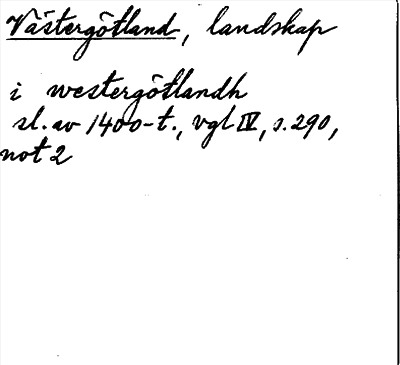 Västergötland, landskap
i westergötlandh
sl. av 1400-t., vgl IV, s. 290,
not 2